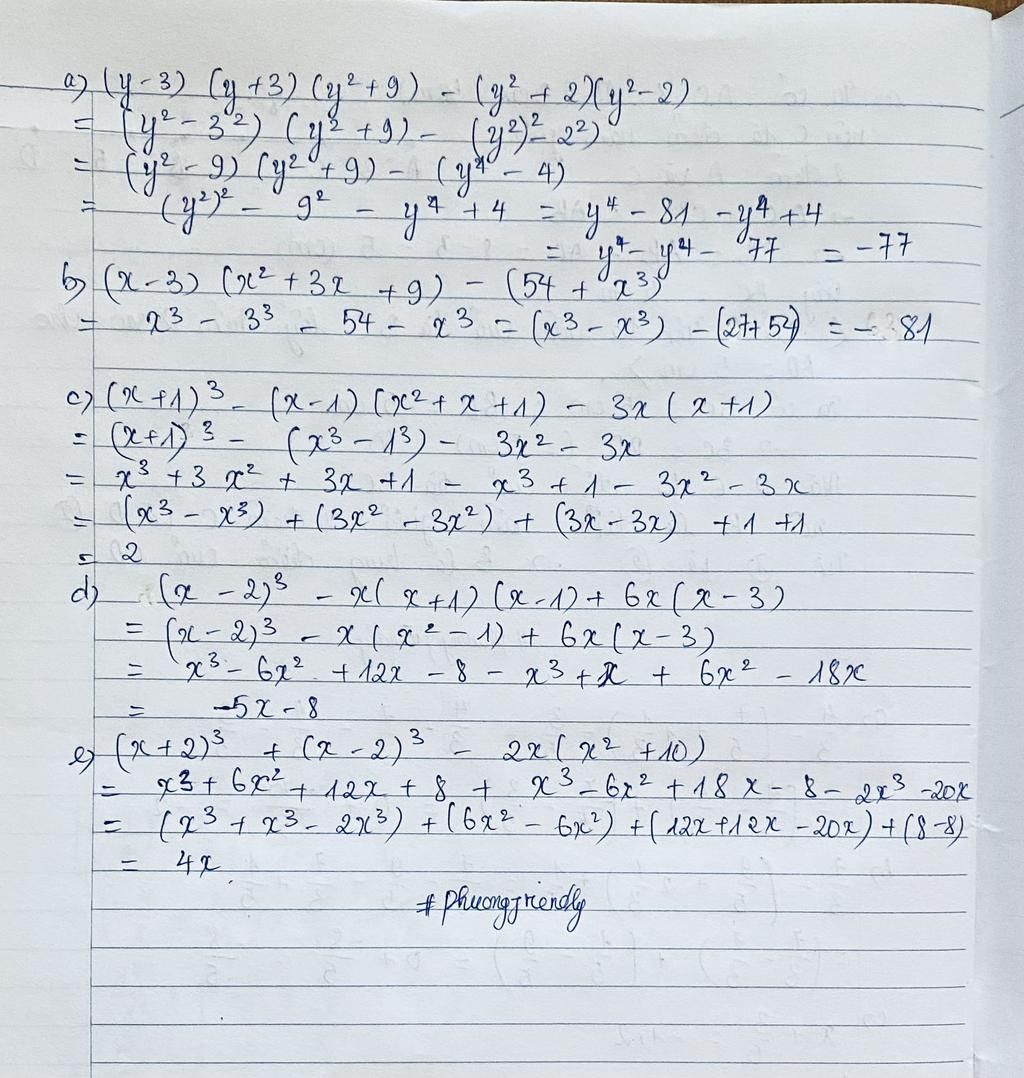 a) (y-3) (y+3) (y² + 9) - (y² + 2)(y² - 2)
= (y² - 3²) (y² + 9) - (y²)² - 2²)
= (y² - 9) (y² + 9) - (y⁴ - 4)
= (y²)² - 9² - y⁴ + 4 = y⁴ - 81 - y⁴ + 4
= y⁴ - y⁴ - 77 = -77
b) (x-3) (x² + 3x + 9) - (54 + x³)
= x³ - 3³ - 54 - x³ = (x³ - x³) - (27+54) = - 81
c) (x+1)³ - (x-1) (x² + x + 1) - 3x (x+1)
= (x+1)³ - (x³ - 1³) - 3x² - 3x
= x³ + 3x² + 3x + 1 - x³ + 1 - 3x² - 3x
= (x³ - x³) + (3x² - 3x²) + (3x - 3x) + 1 + 1
= 2
d) (x - 2)³ - x(x+1) (x-1) + 6x (x - 3)
= (x-2)³ - x (x² - 1) + 6x (x - 3)
= x³ - 6x² + 12x - 8 - x³ + x + 6x² - 18x
= -5x - 8
e) (x+2)³ + (x-2)³ - 2x (x² + 10)
= x³ + 6x² + 12x + 8 + x³ - 6x² + 18x - 8 - 2x³ - 20x
= (x³ + x³ - 2x³) + (6x² - 6x²) + (12x + 12x - 20x) + (8-8)
= 4x
# phuongfriendly